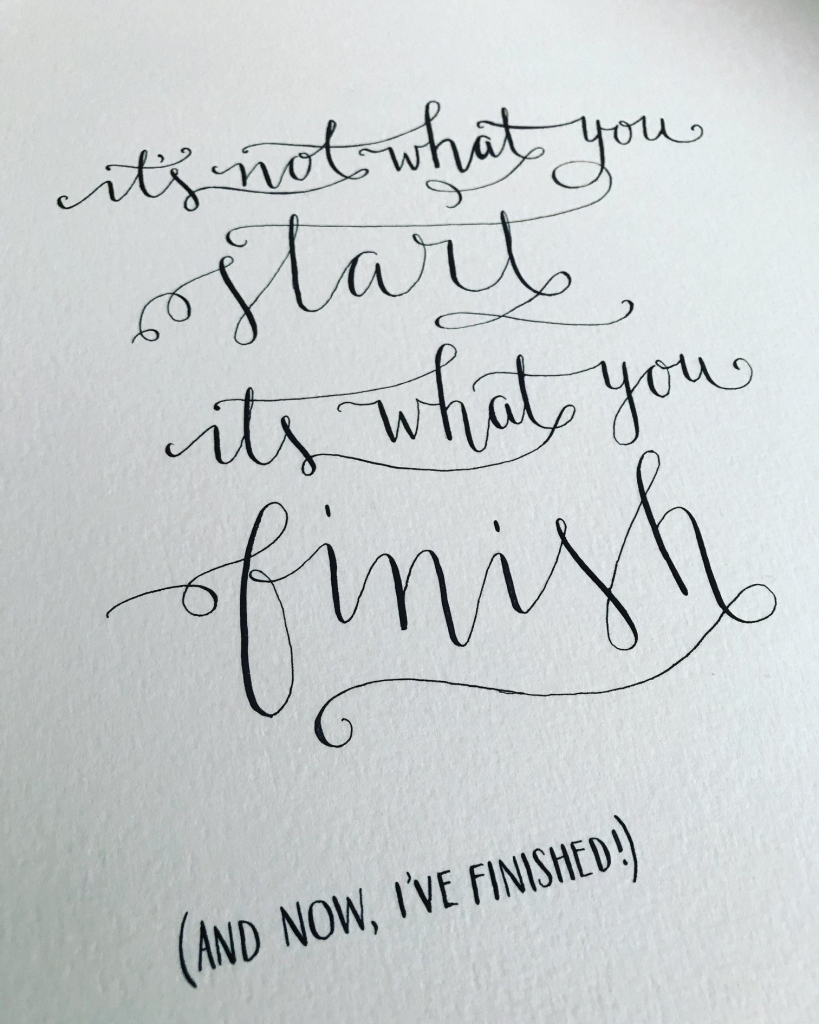 it's not what you
start
its what you
finish
(AND NOW, I'VE FINISHED!)